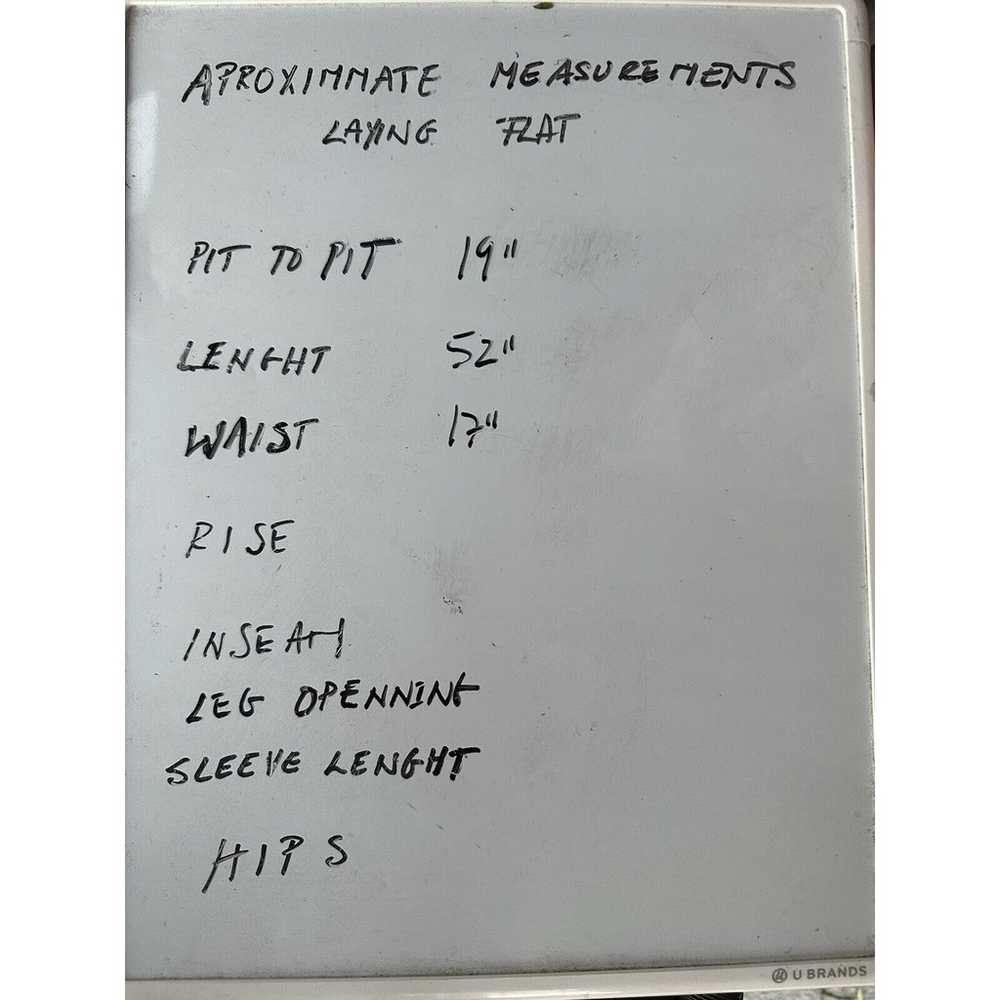 APROXIMMATE MEASUREMENTS
LAYING FLAT
PIT TO PIT 19"
LENGHT 52"
WAIST 17"
RISE
INSEAM
LEG OPENNING
SLEEVE LENGHT
HIPS
U BRANDS